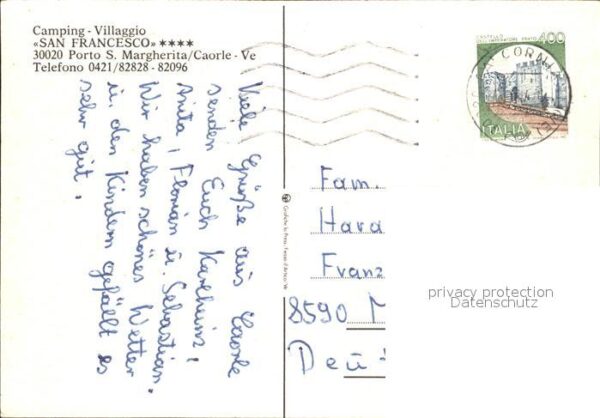 Camping - Villaggio
«SAN FRANCESCO» ★★★★
30020 Porto S. Margherita/Caorle - Ve
Telefono 0421/82828 - 82096
Viele Grüße aus Caorle
senden Euch Karlheinz,
Anita, Florian u. Sebastian.
Wir haben schönes Wetter
u. den Kindern gefällt es
sehr gut.
CASTELLO
DELL'IMPERATORE PRATO
400
ITALIA
Fam.
Hara
Franz
8590 M
Deu
privacy protection
Datenschutz